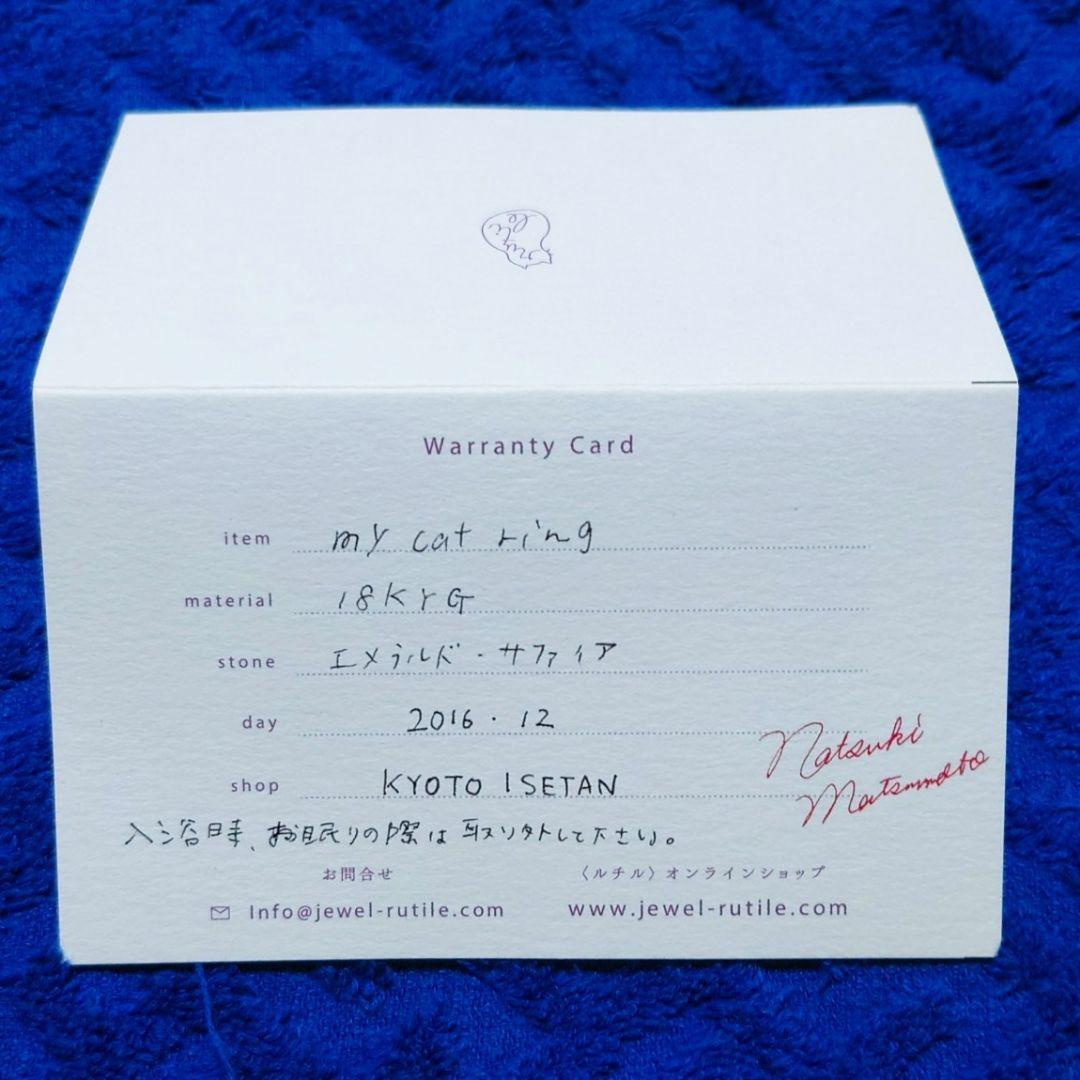 rutile
Warranty Card
item my cat ring
material 18KYG
stone エメラルド・サファイア
day 2016.12
shop KYOTO ISETAN
Natsuki
Matsumoto
入浴時、お眠りの際は取り外して下さい。
お問合せ 〈ルチル〉オンラインショップ
Info@jewel-rutile.com www.jewel-rutile.com